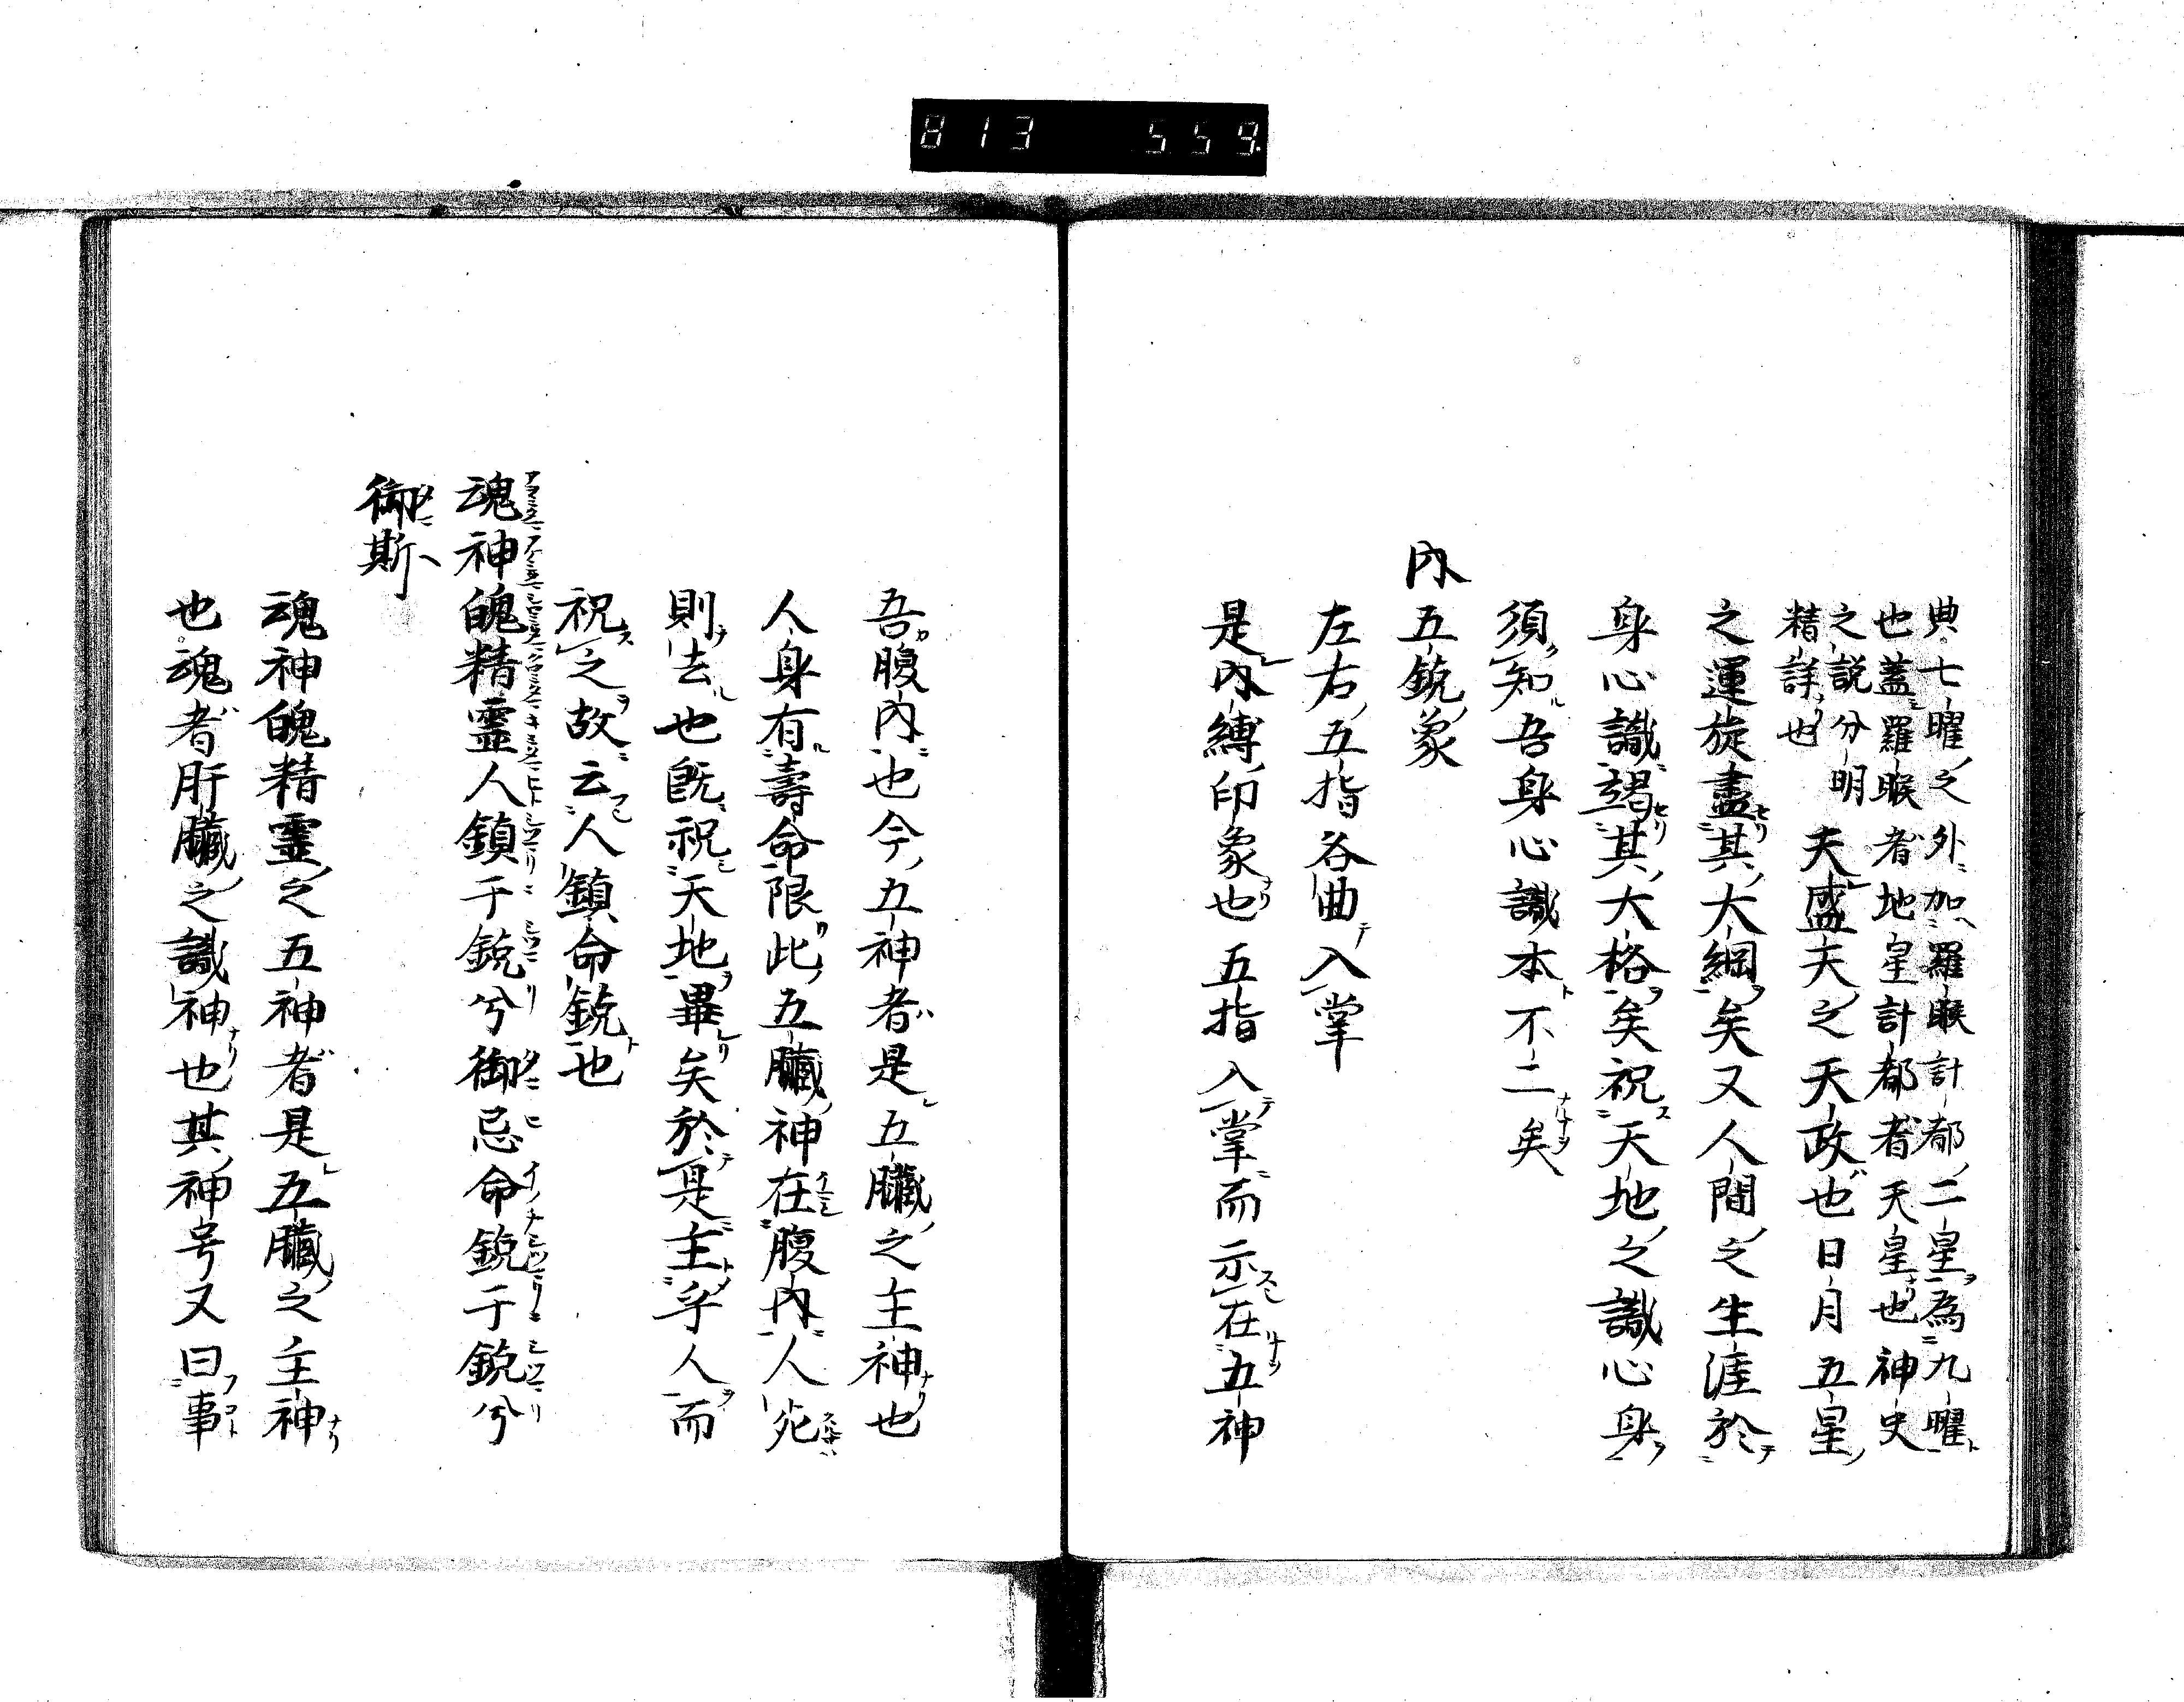 813 559
典七曜之外加羅睺計都二皇為九曜
也蓋羅睺者地皇計都者天皇也神史
之説分明
精詳也
夫盛夫之天政也日月五星
之運旋盡其大綱矣又人間之生涯於
身心識竭其大格矣祝天地之識心身
須知吾身心識本不二矣
内五鋭象
左右五指各曲入掌
是内縛印象也五指入掌而示在五神
吾腹内也今五神者是五臟之主神也
人身有壽命限此五臟神在腹内人死
則去也既祝天地畢矣於是主乎人而
祝之故云人鎮命鋭也
魂神魄精霊人鎮于鋭兮御忌命鋭于鋭兮
御斯
魂神魄精霊之五神者是五臟之主神
也魂者肝臟之識神也其神号又曰事